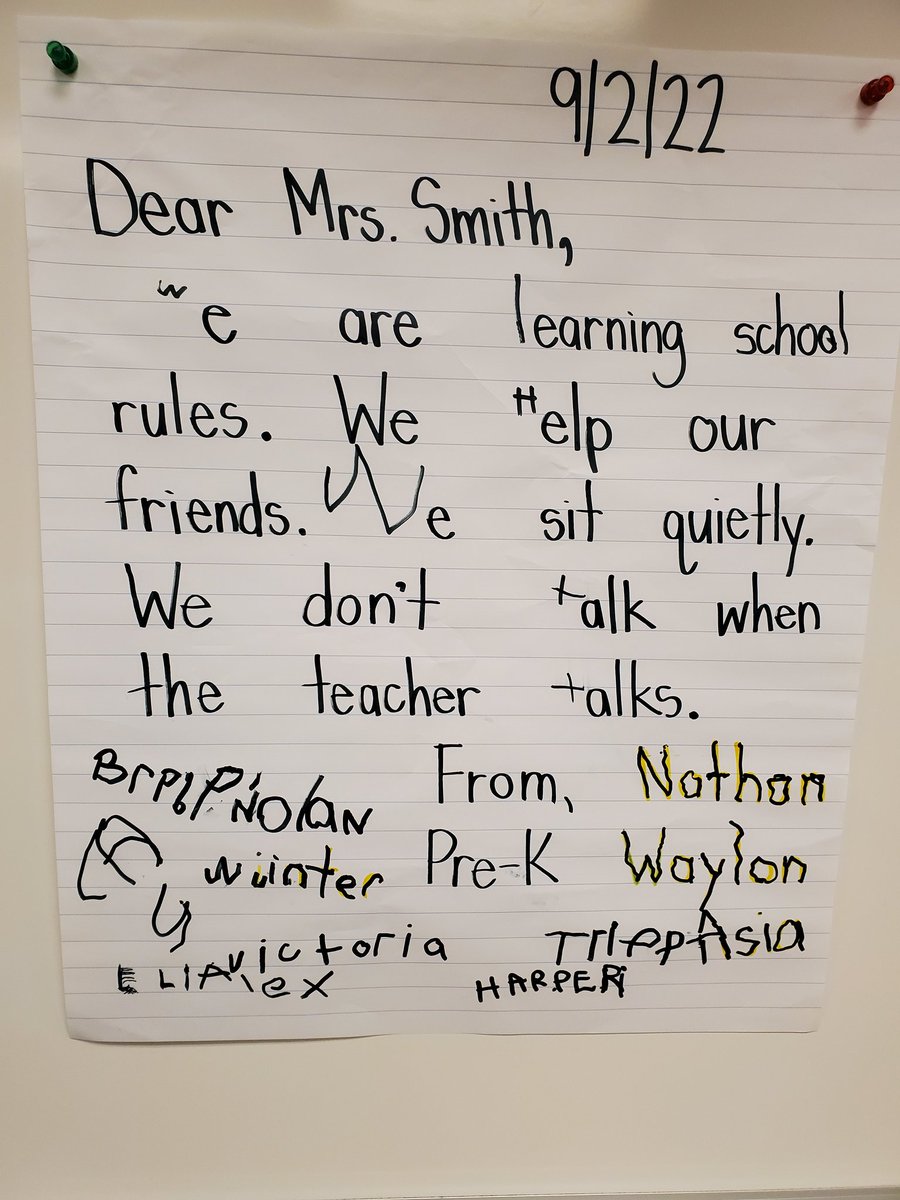 9/2/22
Dear Mrs. Smith,
we are learning school
rules. We Help our
friends. We sit quietly.
We don't talk when
the teacher talks.
From, Nathan
NolaN
wiinter Pre-K Waylon
victoria TrIpp Asia
ELIA lex HARPER